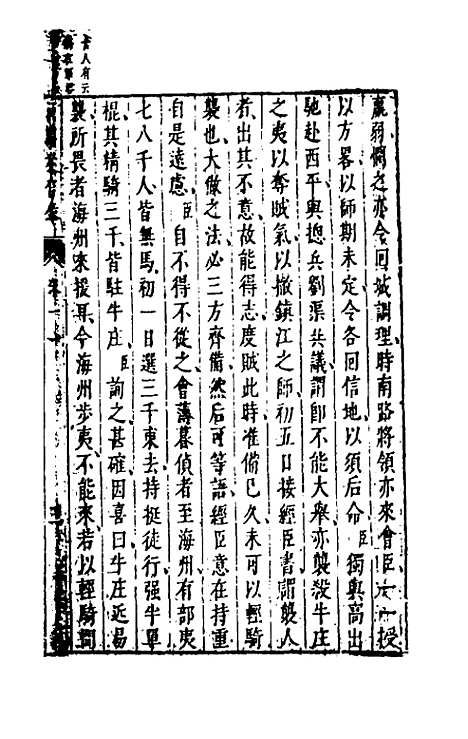 羸弱憫之亦令回城調理時南路將領亦來會臣一一授
以方畧以師期未定令各回信地以須后命臣獨與高出
馳赴西平與揔兵劉渠共議謂卽不能大舉亦襲殺牛庄
之夷以奪賊氣以撤鎮江之師初五日接經臣書謂襲人
者出其不意故能得志度賊此時准備已久未可以輕騎
襲也大做之法必三方齊備然后可等語經臣意在持重
自是遠慮臣自不得不從之會薄暮偵者至海州有部夷
七八千人皆無馬初一日選三千東去持挺徒行强半單
棍其精騎三千皆駐牛庄臣諭之甚確因喜曰牛庄延易
襲所畏者海州來援耳今海州步夷不能來若以輕騎間